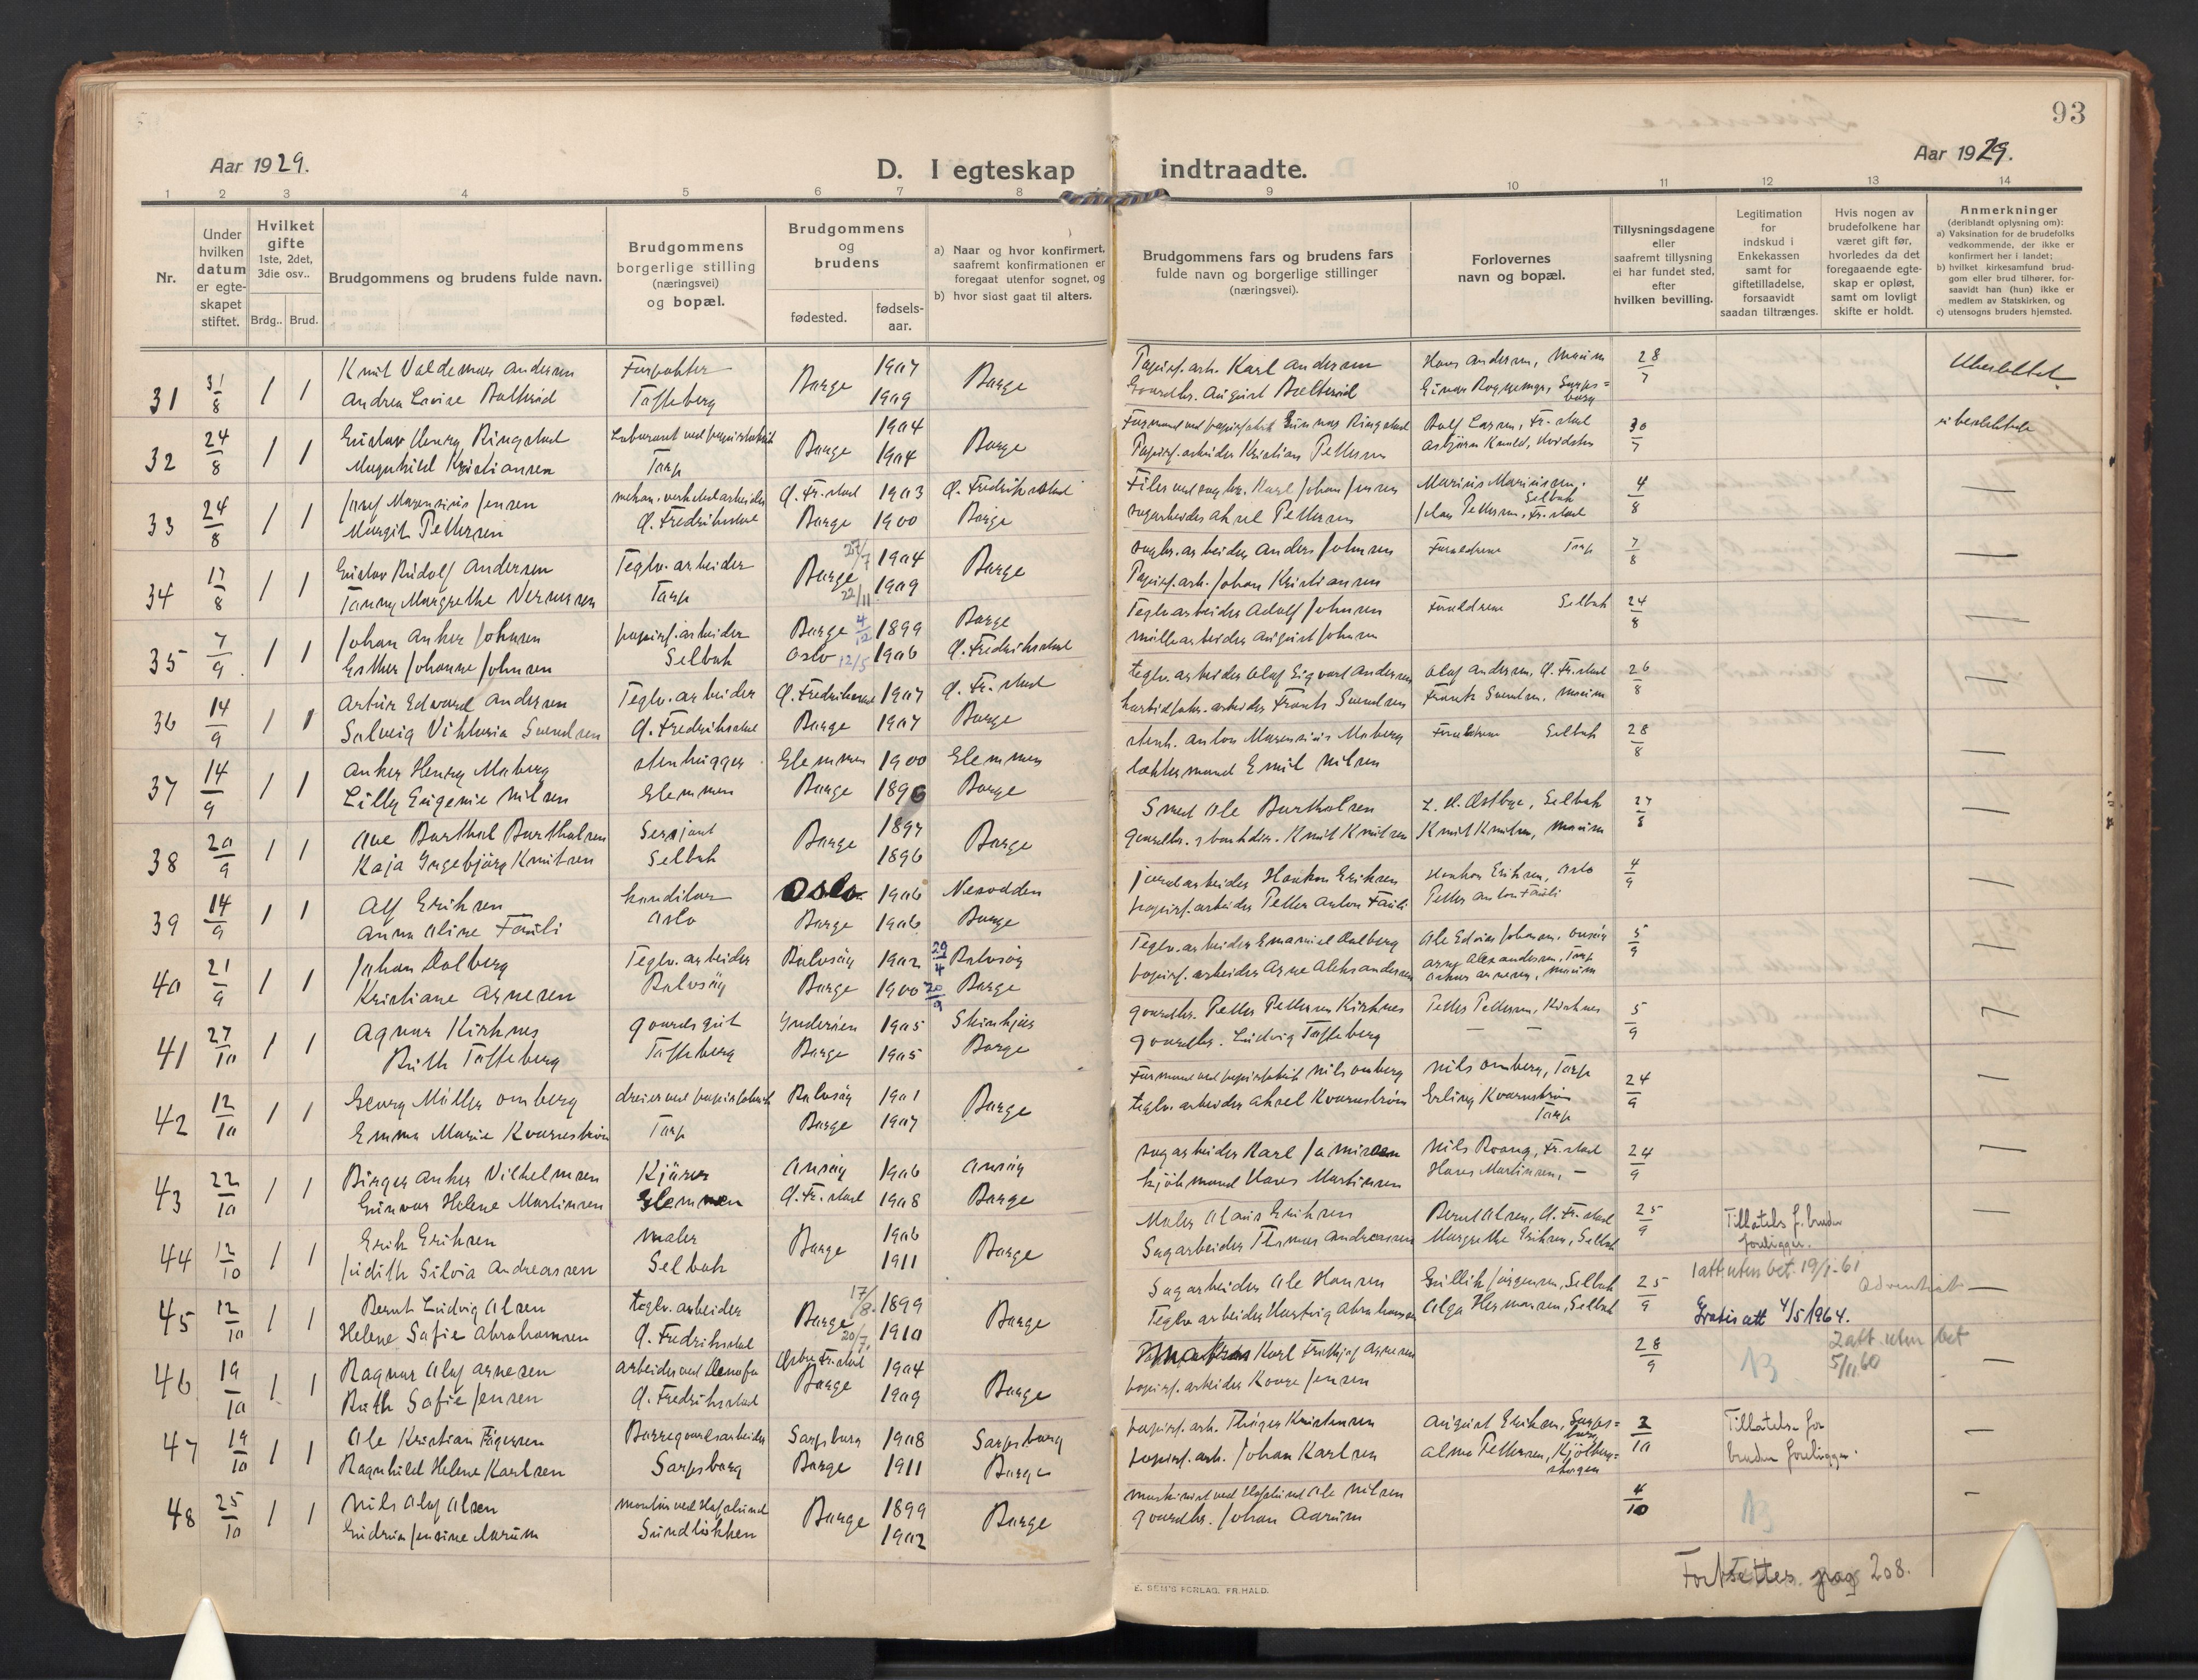 93
Aar 1929.
D. I egteskap indtraadte.
Aar 1929.
1 2 3 4 5 6 7 8 9 10 11 12 13 14
Nr.
Under hvilken datum er egteskapet stiftet.
Hvilket gifte 1ste, 2det, 3die osv..
Brdg.. Brud.
Brudgommens og brudens fulde navn.
Brudgommens borgerlige stilling (næringsvei) og bopæl.
Brudgommens og brudens
fødested. fødsels-aar.
a) Naar og hvor konfirmert, saafremt konfirmationen er foregaat utenfor sognet, og
b) hvor sidst gaat til alters.
Brudgommens fars og brudens fars fulde navn og borgerlige stillinger (næringsvei).
Forlovernes navn og bopæl.
Tillysningsdagene eller saafremt tillysning ei har fundet sted, efter hvilken bevilling.
Legitimation for indskud i Enkekassen samt for giftetilladelse, forsaavidt saadan tiltrænges.
Hvis nogen av brudefolkene har været gift før, hvorledes da det foregaaende egteskap er opløst, samt om lovligt skifte er holdt.
Anmerkninger (deriblandt oplysning om):
a) Vaksination for de brudefolks vedkommende, der ikke er konfirmert her i landet;
b) hvilket kirkesamfund brudgom eller brud tilhører, forsaavidt han (hun) ikke er medlem av Statskirken, og
c) utensogns bruders hjemsted.
31 31/8 1 1 Knut Valdemar Andersen Forpakter Borge 1907 Borge Papirf.arb. Karl Andersen Hans Andersen, Moum 28/7 Ubeslektet
Andrea Lovise Tofteberg 1909 Gaardbr. August Einar
32 24/8 1 1 Gustav Henry Ringstad Laborant ved papirfabrik Borge 1904 Borge Formand ved papirfabrik Gunnar Ringstad Rolf Larsen, Fr.stad 30/7 ubeslektede
Magnhild Kristiansen Torp 1904 Papirf.arbeider Kristian Pettersen
33 24/8 1 1 Josef Marensius Jensen mekan. verkstedarbeider Ø. Fr.stad 1903 Ø. Fredrikstad Filer ved Karl Johan Jensen Marius Mariussen, Selbak 4/8 —
Margit Pettersen Ø. Fredrikstad Borge 1900 Borge Sagarbeider Aksel Pettersen Johan Pettersen, Fr.stad
34 17/8 1 1 Gustav Rudolf Andersen Teglv.arbeider Borge 27/7 1904 Borge Anders Johnsen Forældrene Torp 7/8 —
Fanny Margrethe Torp 22/11 1909 Papirf.arb. Johan Kristiansen
35 7/9 1 1 Johan Anker Johnsen papirf.arbeider Borge 4/12 1899 Borge Teglv.arbeider Adolf Johnsen Forældrene Selbak 24/8 —
Esther Johanne Johnsen Selbak Oslo 12/5 1906 Ø. Fredrikstad Møllearbeider August Johnsen
36 14/9 1 1 Artur Edvard Andersen Teglv.arbeider Ø. Fredrikstad 1907 Ø. Fr.stad Teglv.arbeider Olaf Sigvart Andersen Olaf Andersen, Ø. Fr.stad 26/8 —
Solveig Viktoria Svendsen Ø. Fredrikstad Borge 1907 Borge arbeider Frants Svendsen Frants Svendsen, Moum
37 14/9 1 1 Anker Henry Moberg stenhugger Glemmen 1900 Glemmen stenh. Anton Marensius Moberg Forældrene Selbak 28/8 —
Lilly Eugenie Nilsen Glemmen Borge 1896 Borge Emil Nilsen
38 20/9 1 1 Barthol Bartholsen Sersjant Borge 1897 Borge Smed Ole Bartholsen Østbye, Selbak 27/8 —
Kaja Ingebjørg Knutsen Selbak 1896 Knut Knutsen Knut Knutsen, Moum
39 14/9 1 1 Alf Eriksen konditor Oslo 1906 Nesodden jordarbeider Haakon Eriksen Haakon Eriksen, Oslo 4/9 —
Anna Oline Fauli Oslo Borge 1906 Borge papirf.arbeider Petter Anton Fauli Petter Anton Fauli
40 21/9 1 1 Johan Dalberg Teglv.arbeider Rolvsøy 1902 29/4 Rolvsøy Teglv.arbeider Emanuel Dalberg Ole Edvin Johansen, Onsøy 5/9 —
Kristiane Arnesen Rolvsøy Borge 1900 20/9 Borge papirf.arbeider Arne Aleksandersen Arne Alexandersen, Torp
41 27/10 1 1 Agnar Kirknes gaardsgut Inderøen 1905 Gaardbr. Petter Pettersen Kirknes Petter Pettersen, Kirknes 5/9 —
Ruth Tofteberg Tofteberg Borge 1905 Borge gaardbr. Ludvig Tofteberg — —
42 12/10 1 1 Georg Møller Omberg dreier ved papirfabrik Rolvsøy 1901 Borge Formand ved papirfabrik Nils Omberg Nils Omberg, Torp 24/9 —
Emma Marie Kvarnstrøm Torp Borge 1907 teglv.arbeider Aksel Kvarnstrøm Erling Kvarnstrøm Torp
43 22/10 1 1 Birger Anker Vilhelmsen Onsøy 1906 Onsøy Sagarbeider Karl Nils Roang, Fr.stad 24/9 —
Gunvor Helene Martinsen Glemmen Ø. Fr.stad 1908 Borge Hans Martinsen Hans Martinsen, —
44 12/10 1 1 Erik Eriksen maler Borge 1906 Borge Maler Olaus Eriksen Bernt Olsen, Ø. Fr.stad 25/9 Tillatelse f. bruden foreligger. —
Judith Silvia Andreassen Selbak 1911 Sagarbeider Thomas Andreassen Margrethe Eriksen, Selbak
1 att uten bet. 19/1-61
45 12/10 1 1 Bernt Ludvig Olsen teglv.arbeider Borge 17/8 1899 Borge Sagarbeider Ole Hansen Gullik Jørgensen, Selbak 25/9 Adventist —
Helene Sofie Abrahamsen Ø. Fredrikstad 20/7 1910 Teglv.arbeider Hartvig Abrahamsen Olga Hermansen, Selbak Gratis att 4/5 1964.
46 19/10 1 1 Ragnar Olaf Arnesen arbeider ved Denofa Fr.stad 1904 Borge Karl Fridtjof Arnesen 28/9 2 att. uten bet 5/11 60 —
Ruth Sofie Jensen Ø. Fredrikstad Borge 1909 papirf.arbeider Jensen
47 19/10 1 1 Ole Kristian Borregaardsarbeider Sarpsborg 1908 Sarpsborg papirf.arb. August Eriksen, Sarpsborg 2/10 Tillatelse for bruden foreligger. —
Ragnhild Helene Karlsen Sarpsborg Borge 1911 Borge papirf.arb. Johan Karlsen Alma Pettersen,
48 25/10 1 1 Nils Olaf Olsen montør ved Hafslund Borge 1899 Borge maskinist ved Hafslund Ole Nilsen 4/10 —
Gudrun Jensine Aarum Sundløkken 1902 gaardbr. Johan Aarum
Fortsettes pag 208.
E. SEM'S FORLAG, FR.HALD.